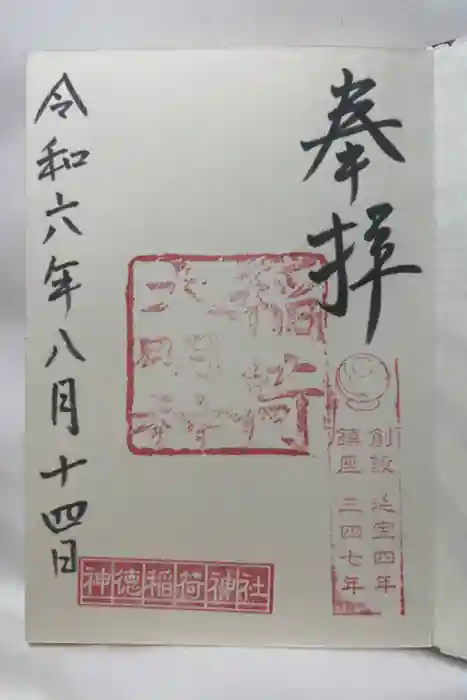 奉拝
創設 延宝四年
鎮座 三四七年
稲荷
大明神
神徳稲荷神社
令和六年八月十四日